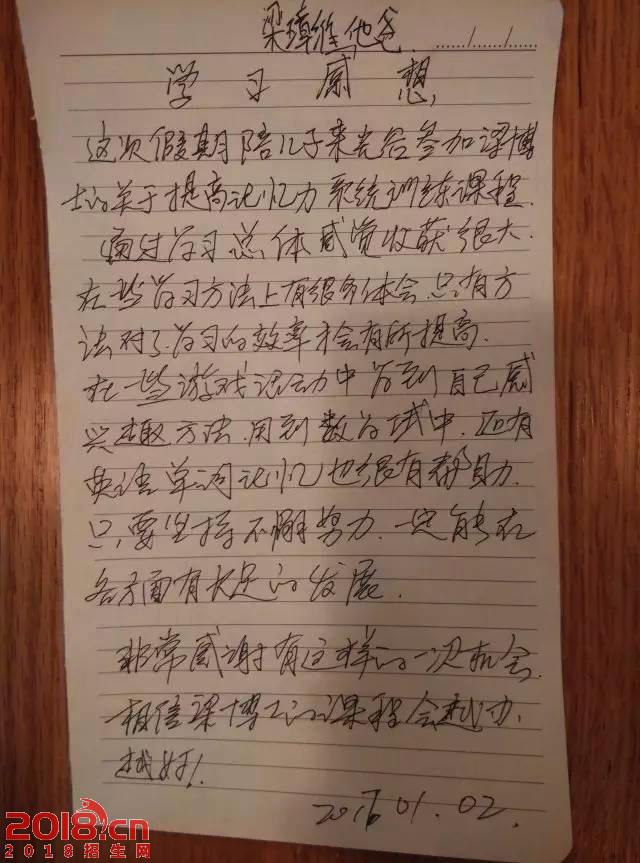 梁璋维他爸
学习感想
这次假期陪儿子来光谷参加梁博
士的关于提高记忆力系统训练课程.
通过学习总体感觉收获很大.
在些学习方法上有很多体会.只有方
法对了学习的效率才会有所提高.
在一些游戏活动中学到自己感
兴趣方法.用到数学式中.还有
英语单词记忆也很有帮助.
只要坚持不懈努力.一定能在
各方面有长足的发展.
非常感谢有这样的一次机会.
相信梁博士的课程会越办.
越好!
01.02.
2018.cn
2018招生网